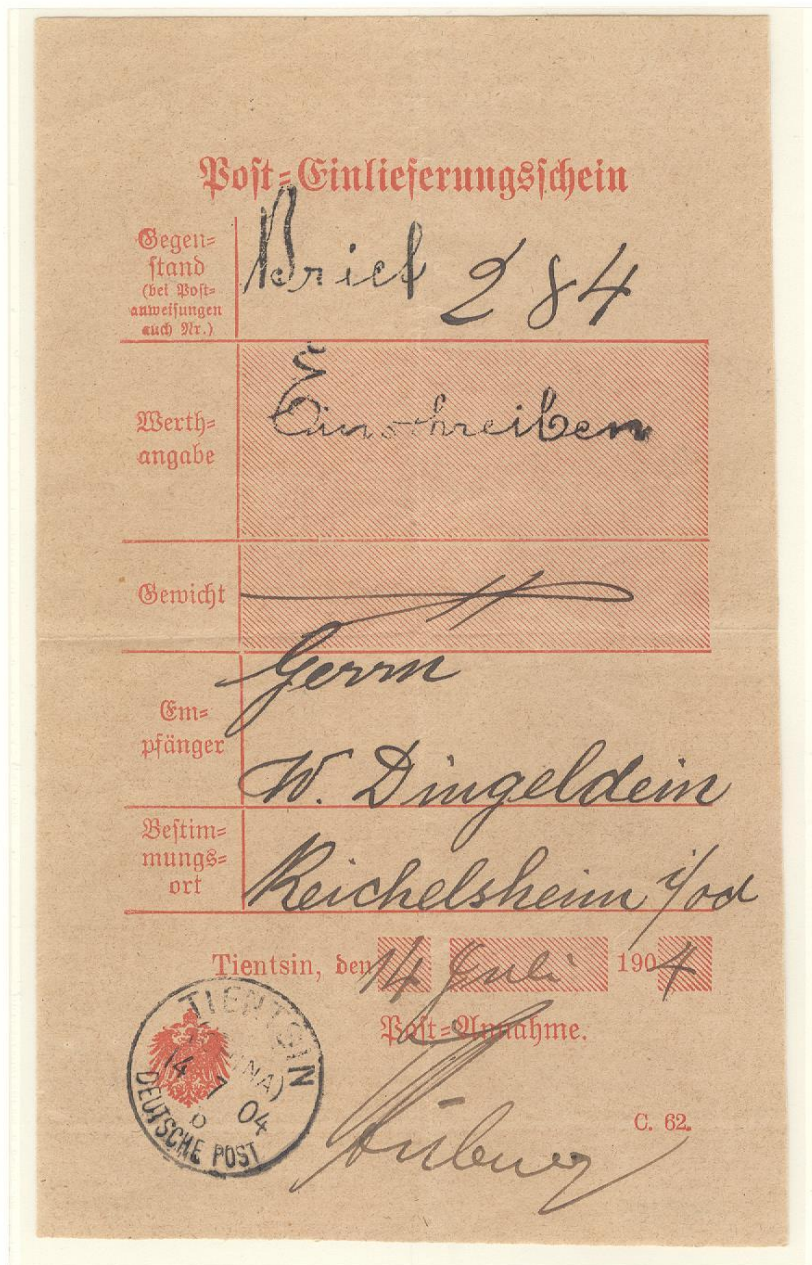 Post=Einlieferungsschein
Gegen=
stand
(bei Post=
anweisungen
auch Nr.)
Brief 284
Werth=
angabe
Einschreiben
Gewicht
Em=
pfänger
Herrn
W. Dingeldein
Bestim=
mungs=
ort
Reichelsheim i/od
Tientsin, den 14 Juli 1904
Post=Annahme.
TIENTSIN
(CHINA)
14 7 04
b
DEUTSCHE POST
C. 62.